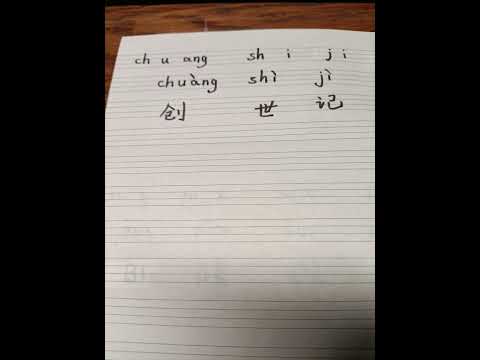 ch u ang sh i j i
chuàng shì jì
创 世 记